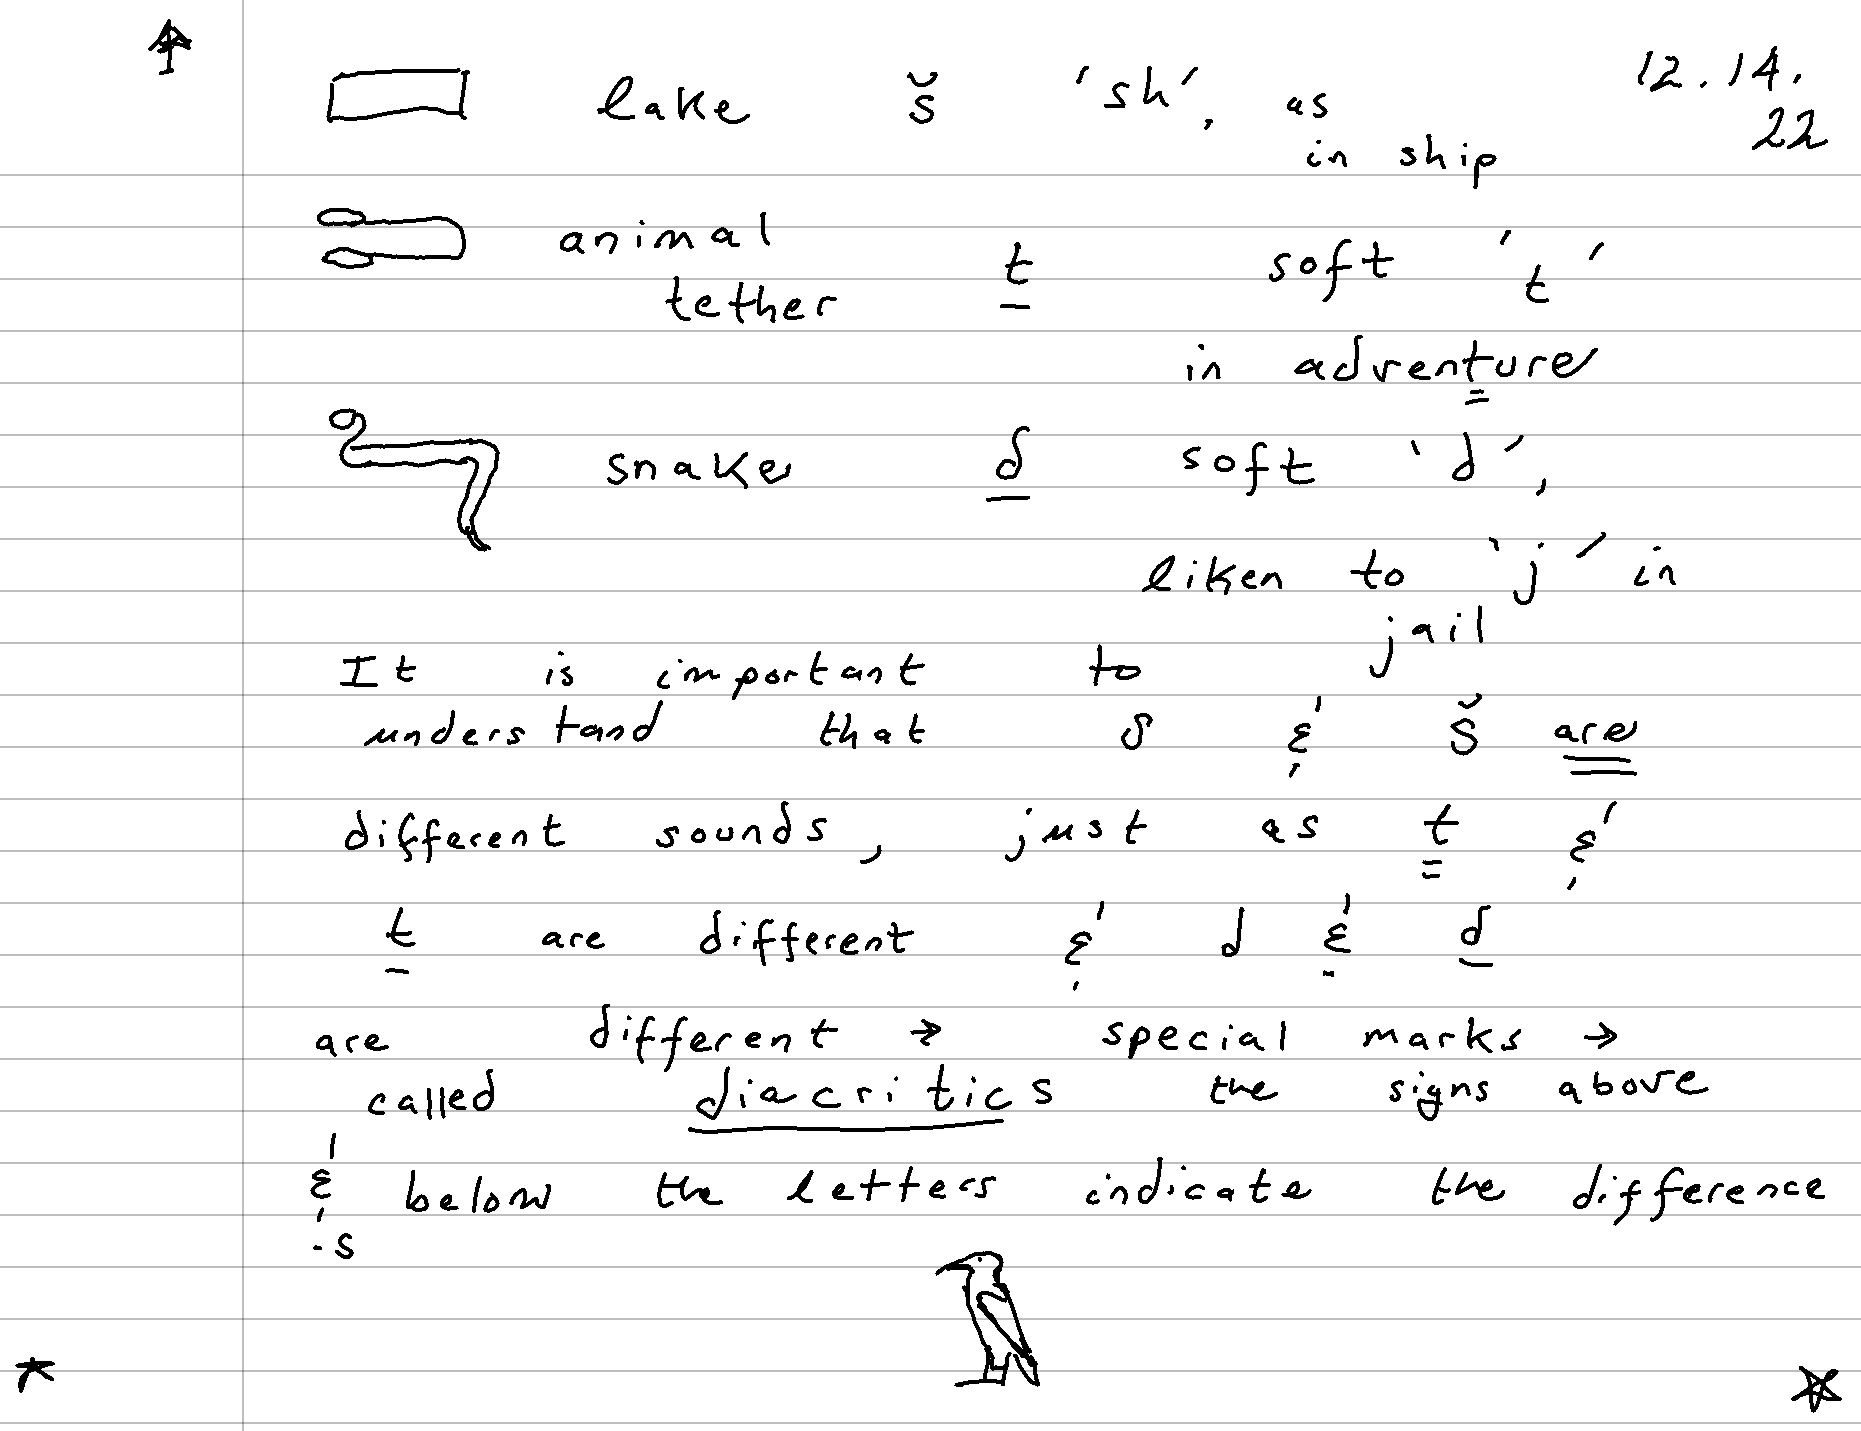 lake š 'sh', as 12.14.
in ship 22
animal
tether ṯ soft 't'
in adventure
snake ḏ soft 'd',
liken to 'j' in
jail
It is important to
understand that s & š are
different sounds, just as t &
ṯ are different & d & ḏ
are different → special marks →
called diacritics the signs above
& below the letters indicate the difference
-s